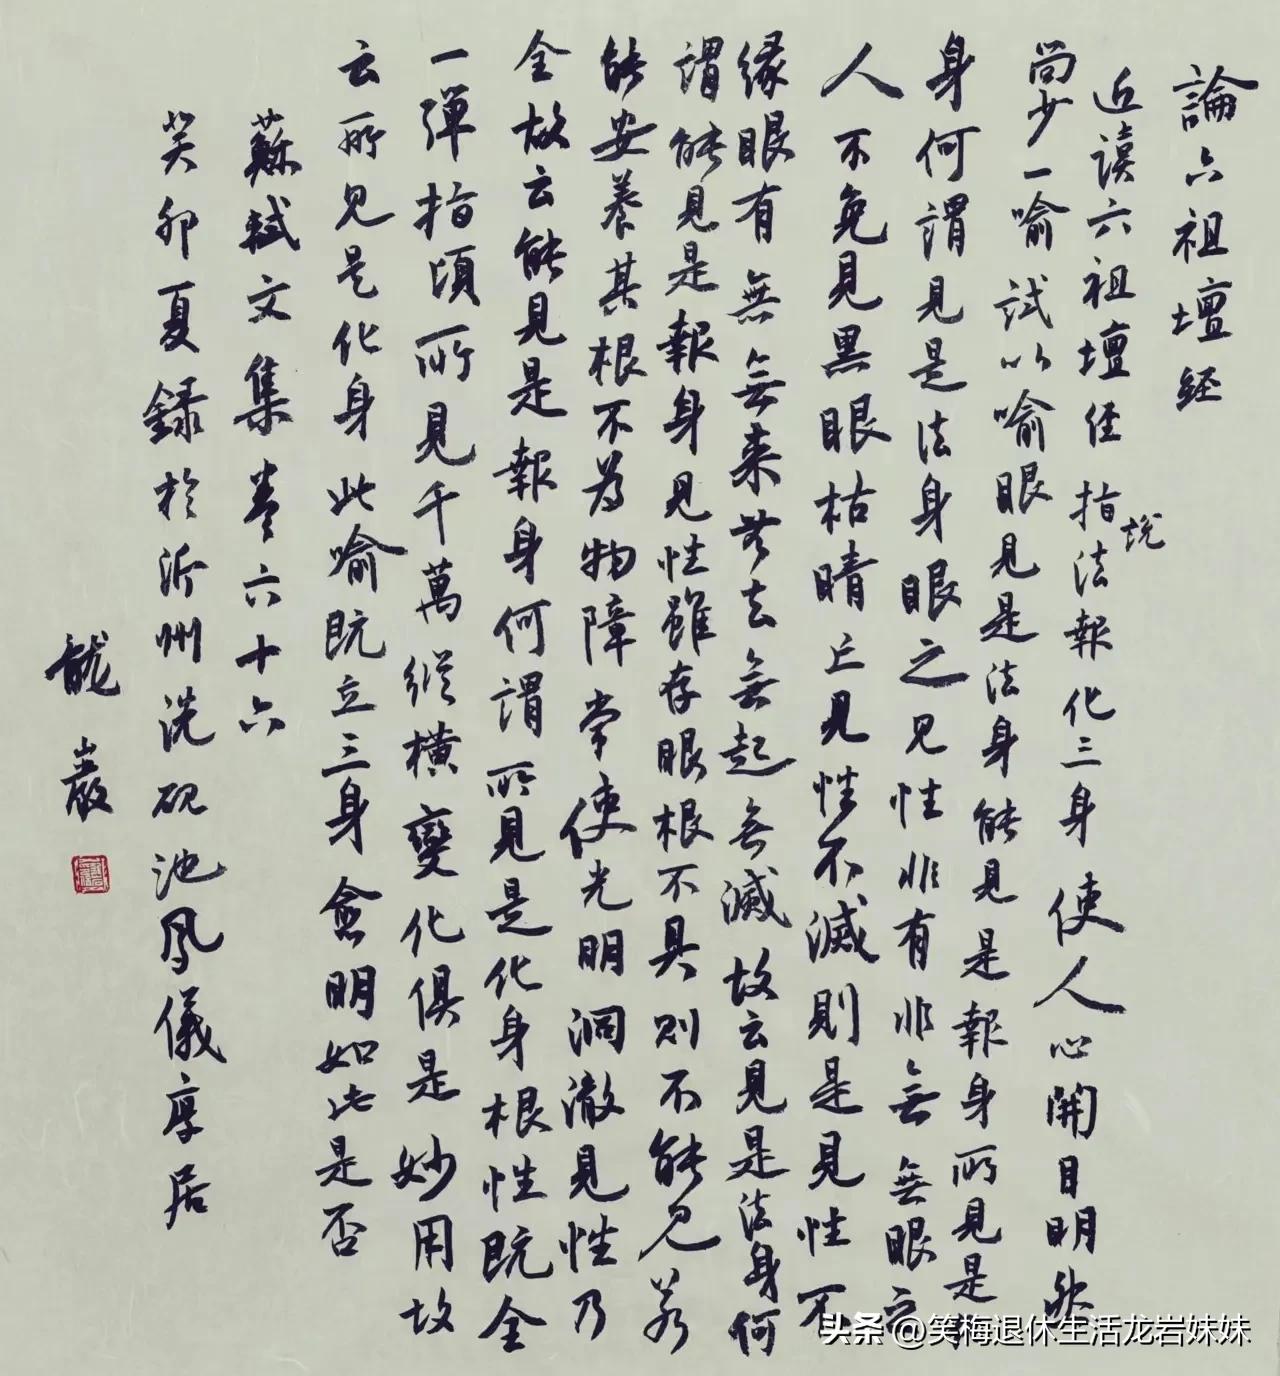 論六祖壇经
近读六祖壇经指说法報化三身使人心開目明然
尚少一喻試以喻眼見是法身能見是報身所見是
身何謂見是法身眼之见性非有非無無眼之
人不免見黑眼枯睛亡見性不滅則是見性不
緣眼有無無来無去無起無滅故云見是法身何
謂能見是報身見性雖存眼根不具则不能见若
能安養其根不为物障常使光明洞澈見性乃
全故云能見是報身何謂所見是化身根性既全
一彈指頃所見千萬縱橫變化俱是妙用故
云所见是化身此喻既立三身愈明如此是否
蘇軾文集卷六十六
癸卯夏録於沂州洗砚池凤儀厚居
龍巖
头条 @笑梅退休生活龙岩妹妹